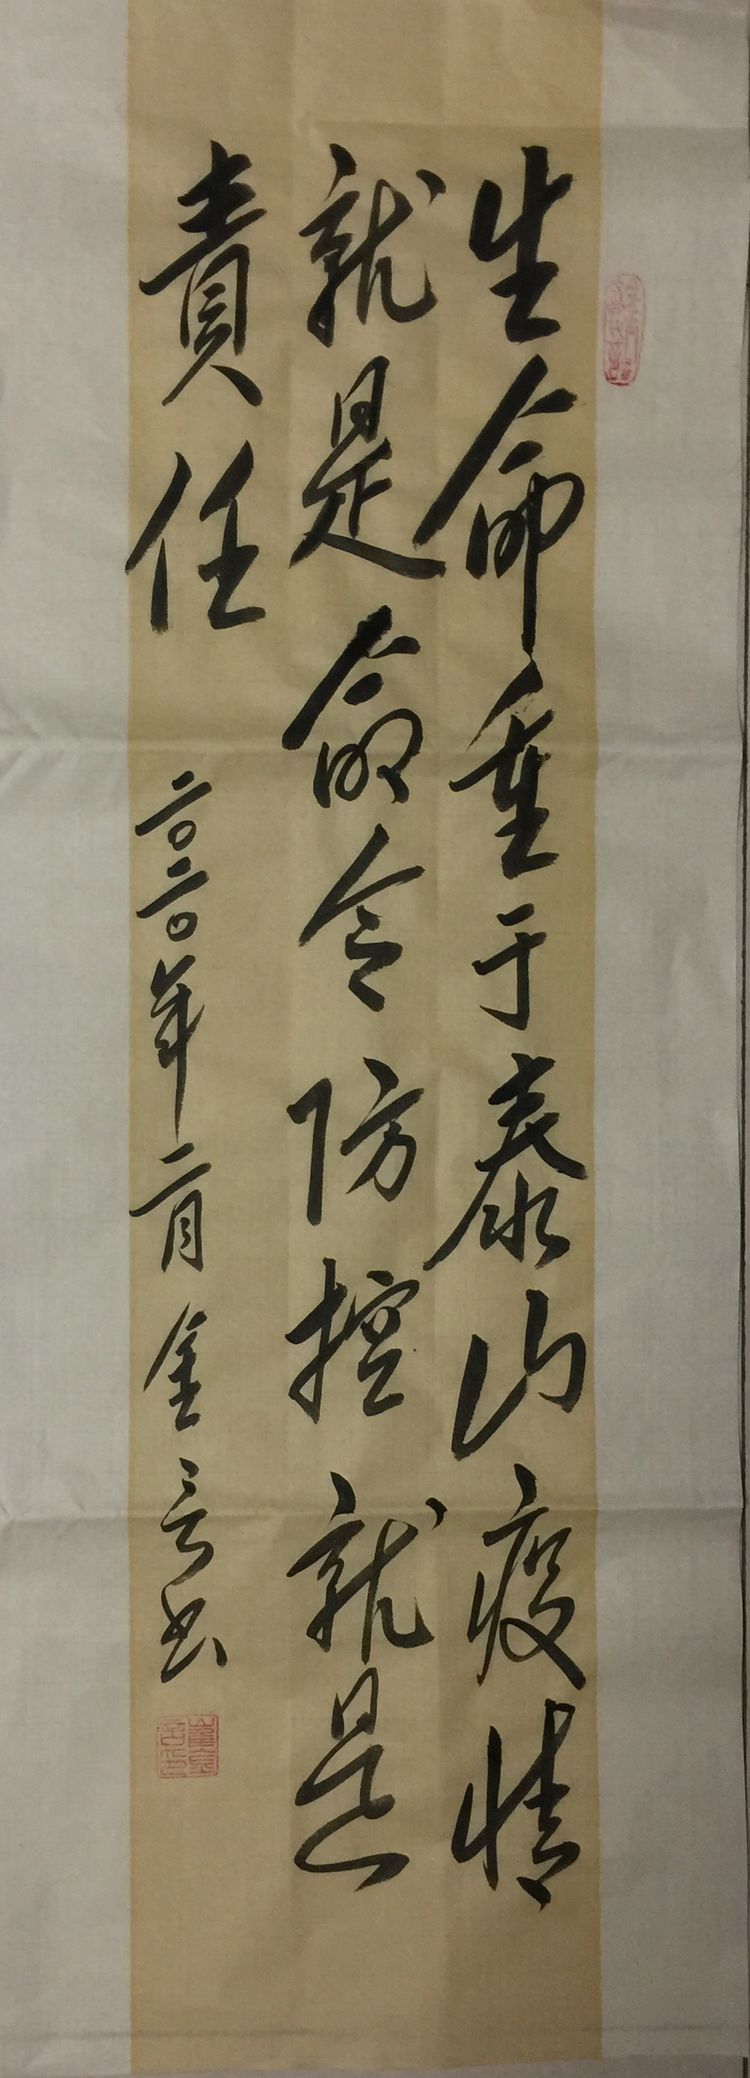 生命重于泰山疫情
就是命令防控就是
責任
二〇二〇年二月金言书